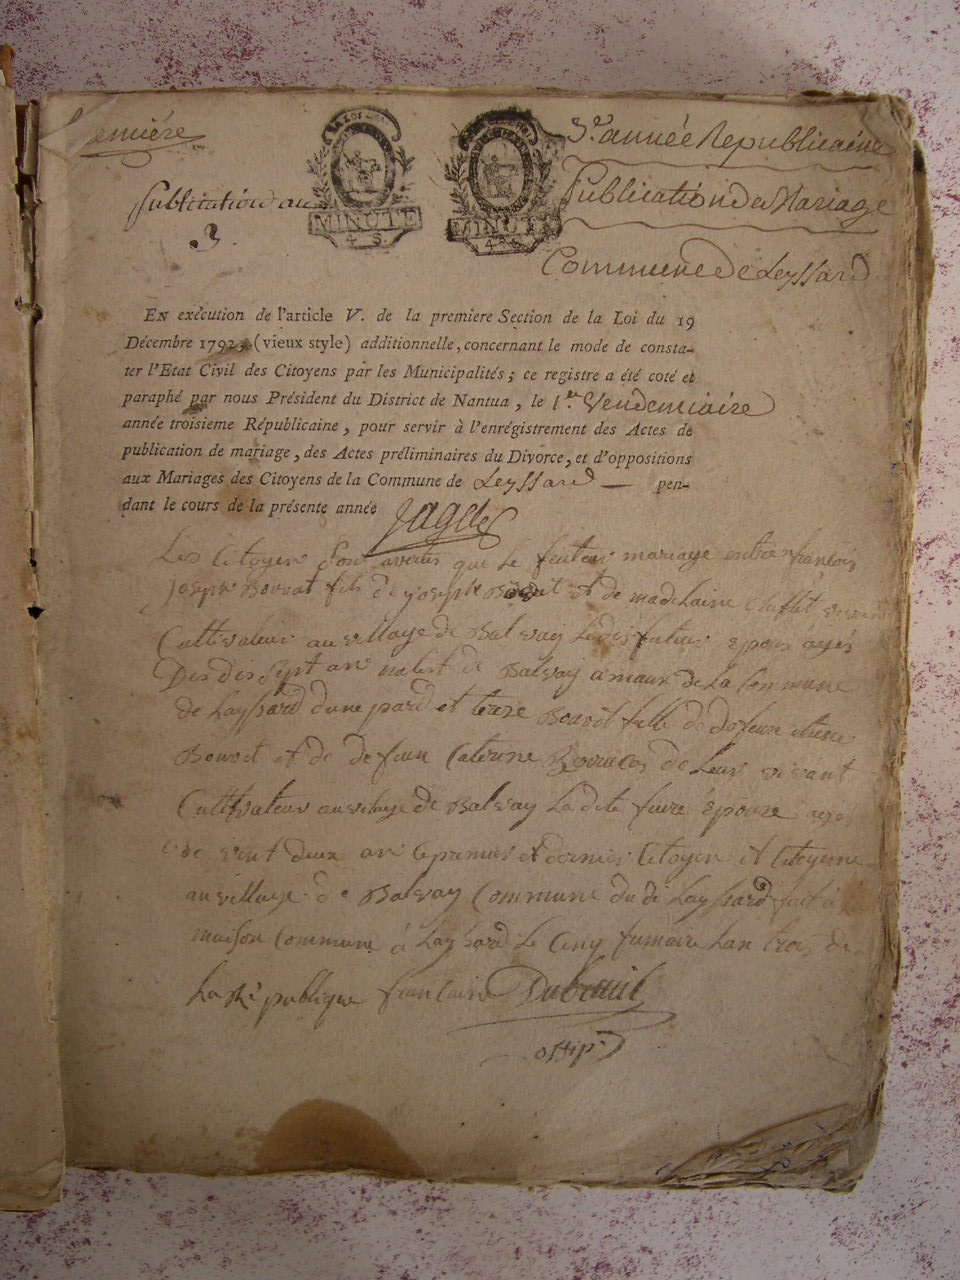 3e année Republicaine
Premiére
Publication de Mariage
Publication au
3
MINUTE
4 S
MINUTE
4 S
Commune de Leyssard
En exécution de l'article V. de la premiere Section de la Loi du 19
Décembre 1792, (vieux style) additionnelle, concernant le mode de consta-
ter l'Etat Civil des Citoyens par les Municipalités; ce registre a été coté et
paraphé par nous Président du District de Nantua, le 1er Vendemiaire
année troisieme Républicaine, pour servir à l'enrégistrement des Actes de
publication de mariage, des Actes préliminaires du Divorce, et d'oppositions
aux Mariages des Citoyens de la Commune de Leyssard — pen-
dant le cours de la présente année
Les Citoyen son avertis que le futeur mariage entre françois
Joseph Bouvat fils de joseph et de madelaine
Cultivateur au village de Balvay futur epoux agés
Des dis sept an de Balvay de La Commune
de Layssard dune pard et tereze Bouvot fille de
Bouvot et de de feue Caterine de Leur vivant
Cultivateur au vilage de Balvay La dite épouze
de vint deux an le premier et dernier Citoyen et Citoyenne
au village de Balvay Commune du di Layssard fait à
maison Commune à Layssard Le Cinq fumaire Lan trois de
La Republique francaise Dubreuil
offip